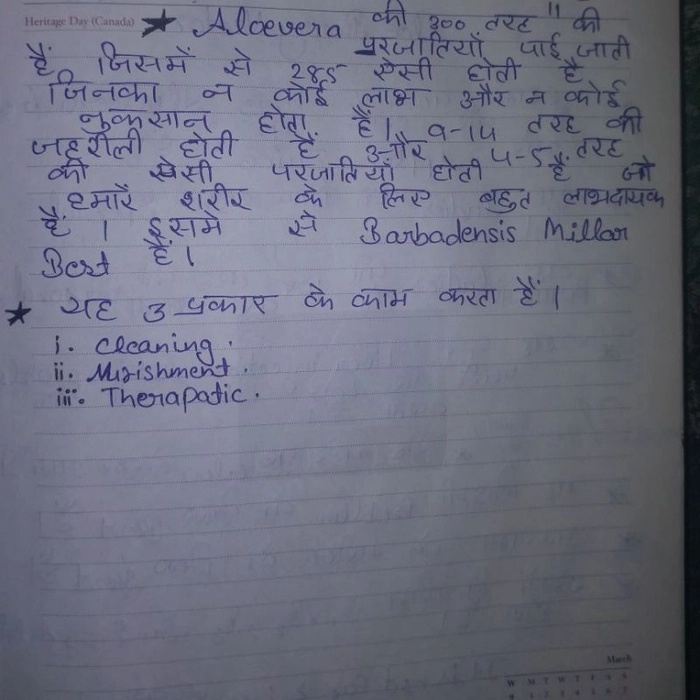 Heritage Day (Canada)
★ Aloevera की 300 तरह " की
परजातियाँ पाई जाती
हैं जिसमें से 285 ऐसी होती है
जिनका न कोई लाभ और न कोई
नुकसान होता है। 9-14 तरह की
जहरीली होती हैं और 4-5 तरह
की ऐसी परजातियाँ होती हैं जो
हमारे शरीर के लिए बहुत लाभदायक
हैं । इसमें से Barbadensis Millar
Best हैं।
★ यह 3 प्रकार के काम करता हैं ।
i. Cleaning.
ii. Nurishment.
iii. Therapatic.
March
W M T W T F S S